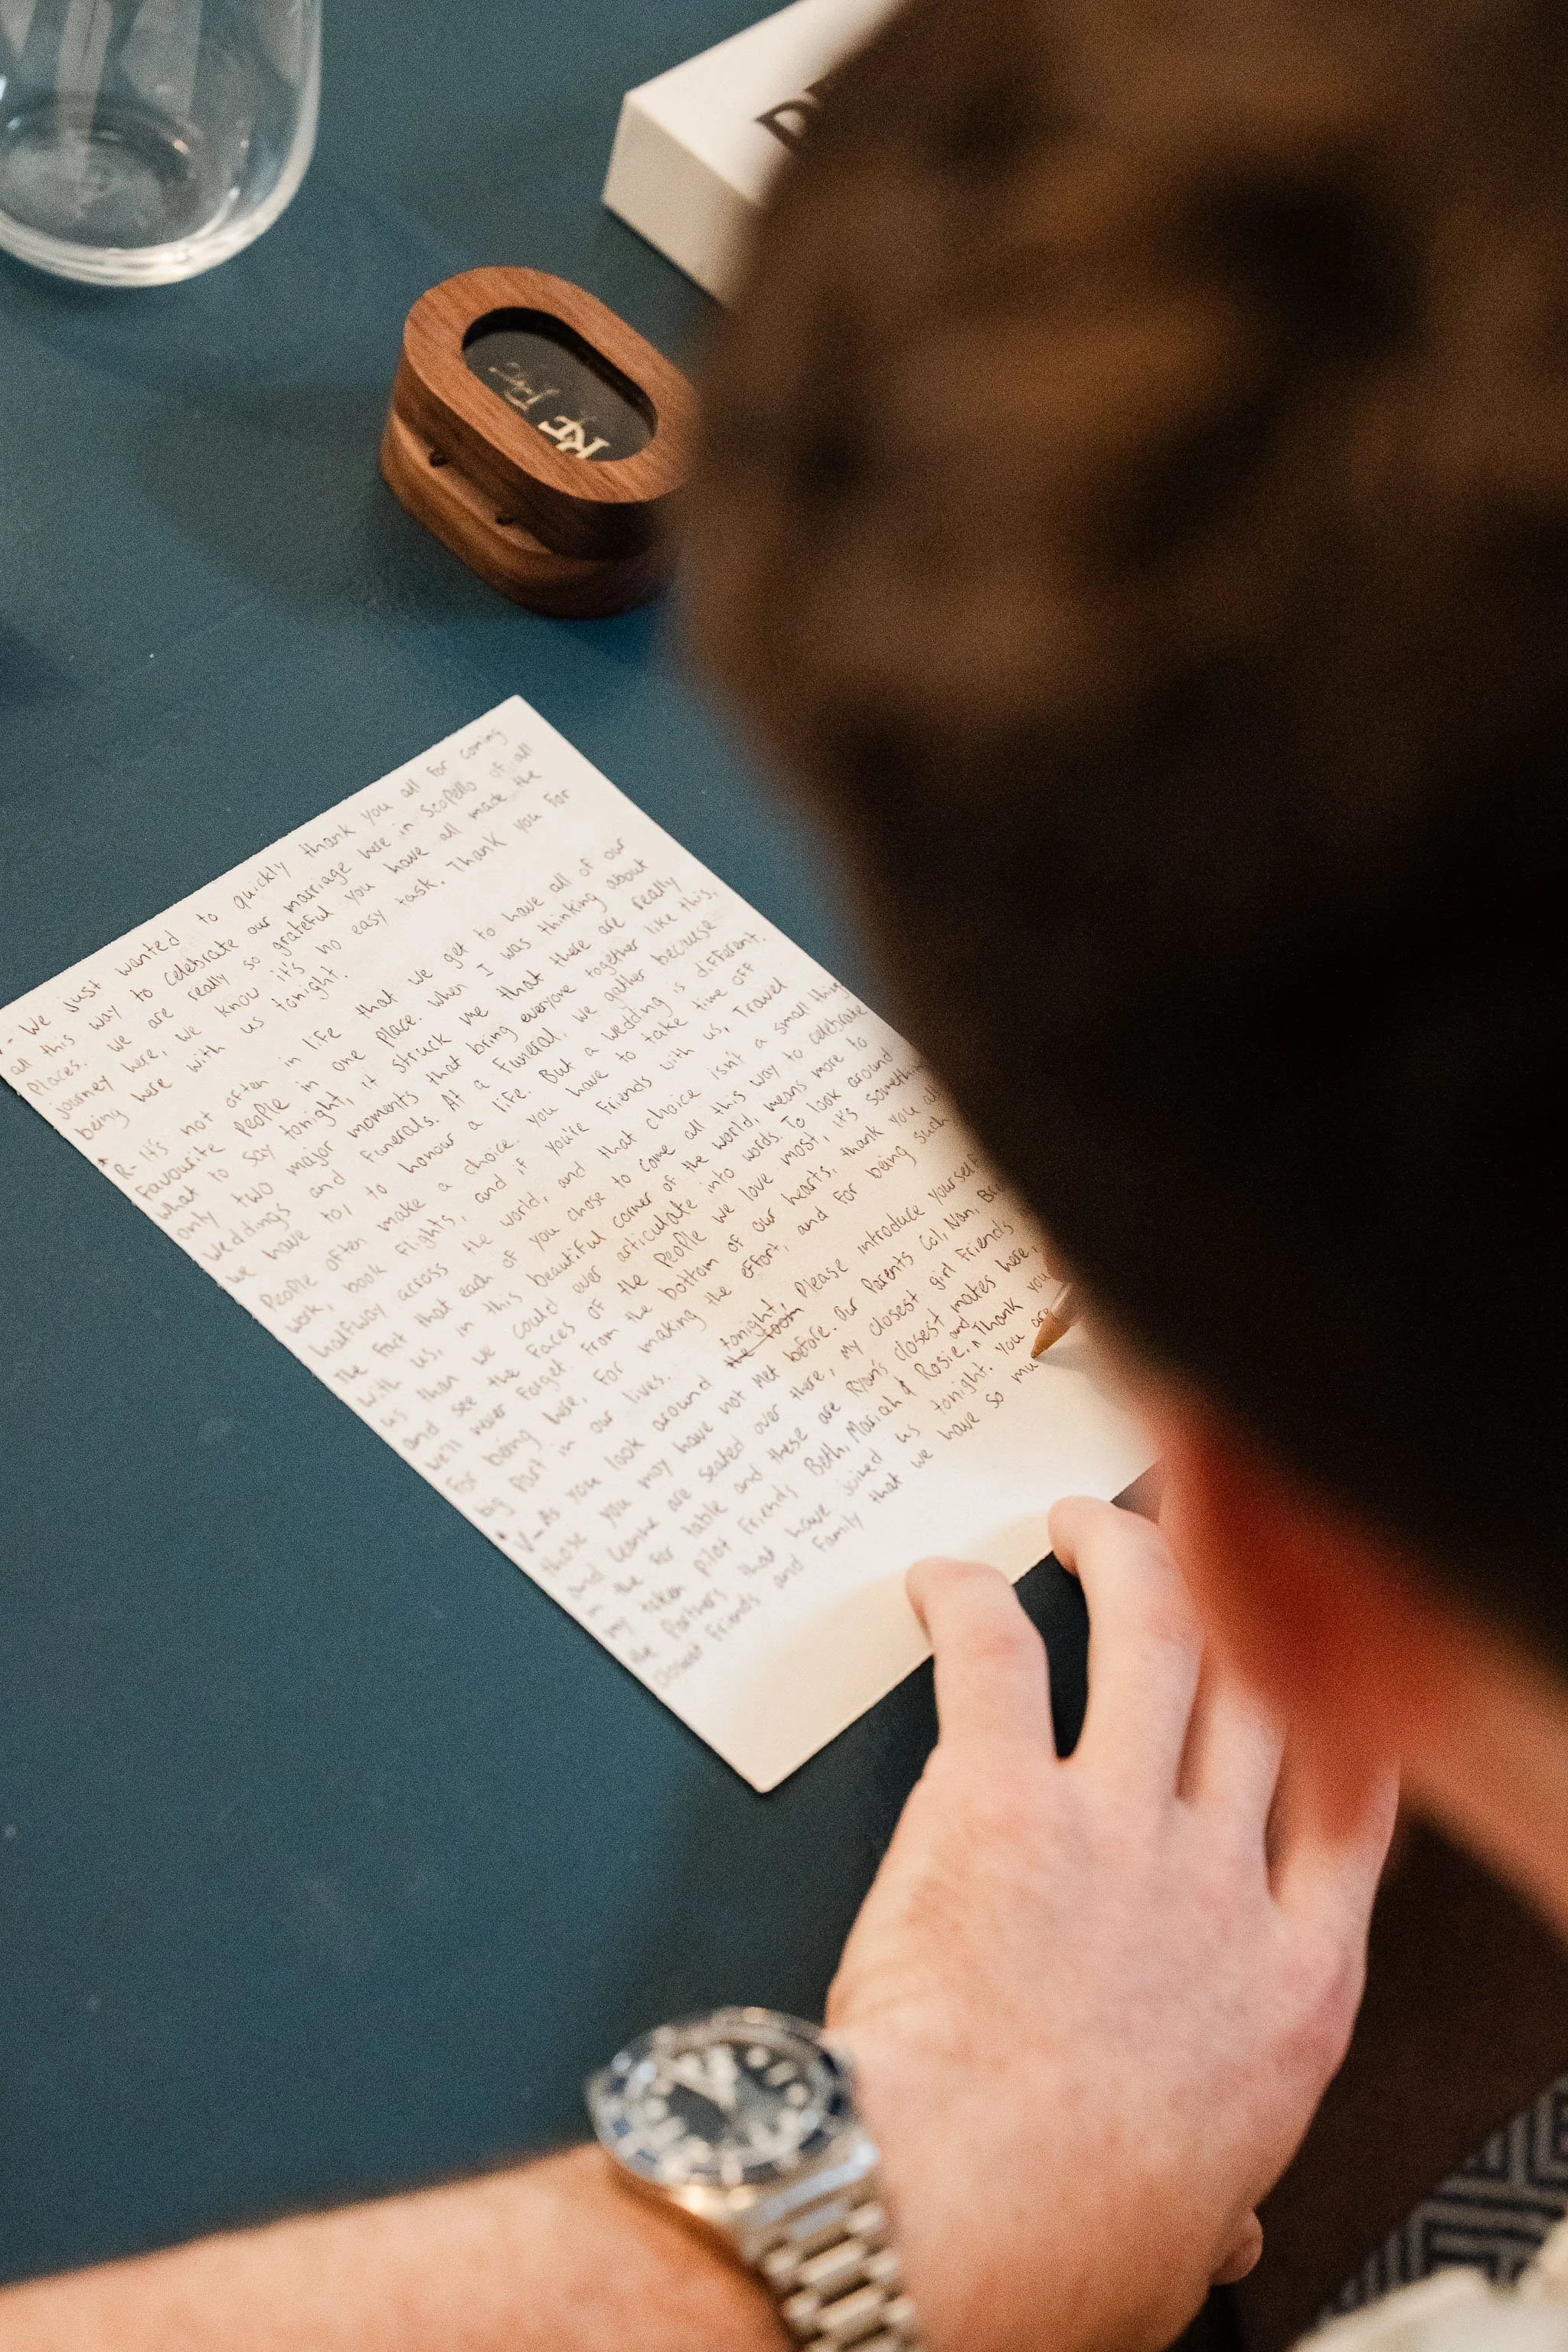 D
RF
V- We just wanted to quickly thank you all for coming
all this way to celebrate our marriage here in Scopello of all
places. We are really so grateful you have all made the
journey here, we know it's no easy task. Thank you for
being here with us tonight.
R- It's not often in life that we get to have all of our
favourite people in one place. When I was thinking about
what to say tonight, it struck me that there are really
only two major moments that bring everyone together like this,
weddings and funerals. At a funeral, we gather because
we have to, to honour a life. But a wedding is different.
People often make a choice. You have to take time off
work, book flights, and if you're friends with us, travel
halfway across the world, and that choice isn't a small thing
The fact that each of you chose to come all this way to celebrate
with us, in this beautiful corner of the world, means more to
us than we could ever articulate into words. To look around
and see the faces of the people we love most, it's something
we'll never forget. From the bottom of our hearts, thank you all
for being here, for making the effort, and for being such
big part in our lives.
V- As you look around the room tonight, please introduce yourself
those you may have not met before. Our parents Col, Nan,
and are seated over there, my closest girl friends
in the for table and these are Ryan's closest mates here,
my taken pilot friends Beth, Mariah & Rosie. and Thank you
the partners that have joined us tonight. You are
closest friends and family that we have so mu